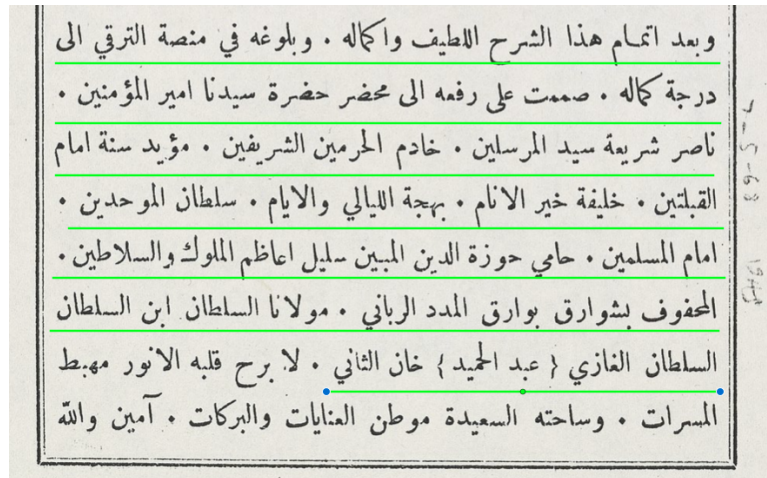 وبعد اتمام هذا الشرح اللطيف واكماله . وبلوغه في منصة الترقي الى
درجة كماله . صممت على رفعه الى محضر حضرة سيدنا امير المؤمنين .
ناصر شريعة سيد المرسلين . خادم الحرمين الشريفين . مؤيد سنة امام
القبلتين . خليفة خير الانام . بهجة الليالي والايام . سلطان الموحدين .
امام المسلمين . حامي حوزة الدين المبين سليل اعاظم الملوك والسلاطين .
المحفوف بشوارق بوارق المدد الرباني . مولانا السلطان ابن السلطان
السلطان الغازي { عبد الحميد } خان الثاني . لا برح قلبه الانور مهبط
المسرات . وساحته السعيدة موطن العنايات والبركات . آمين والله